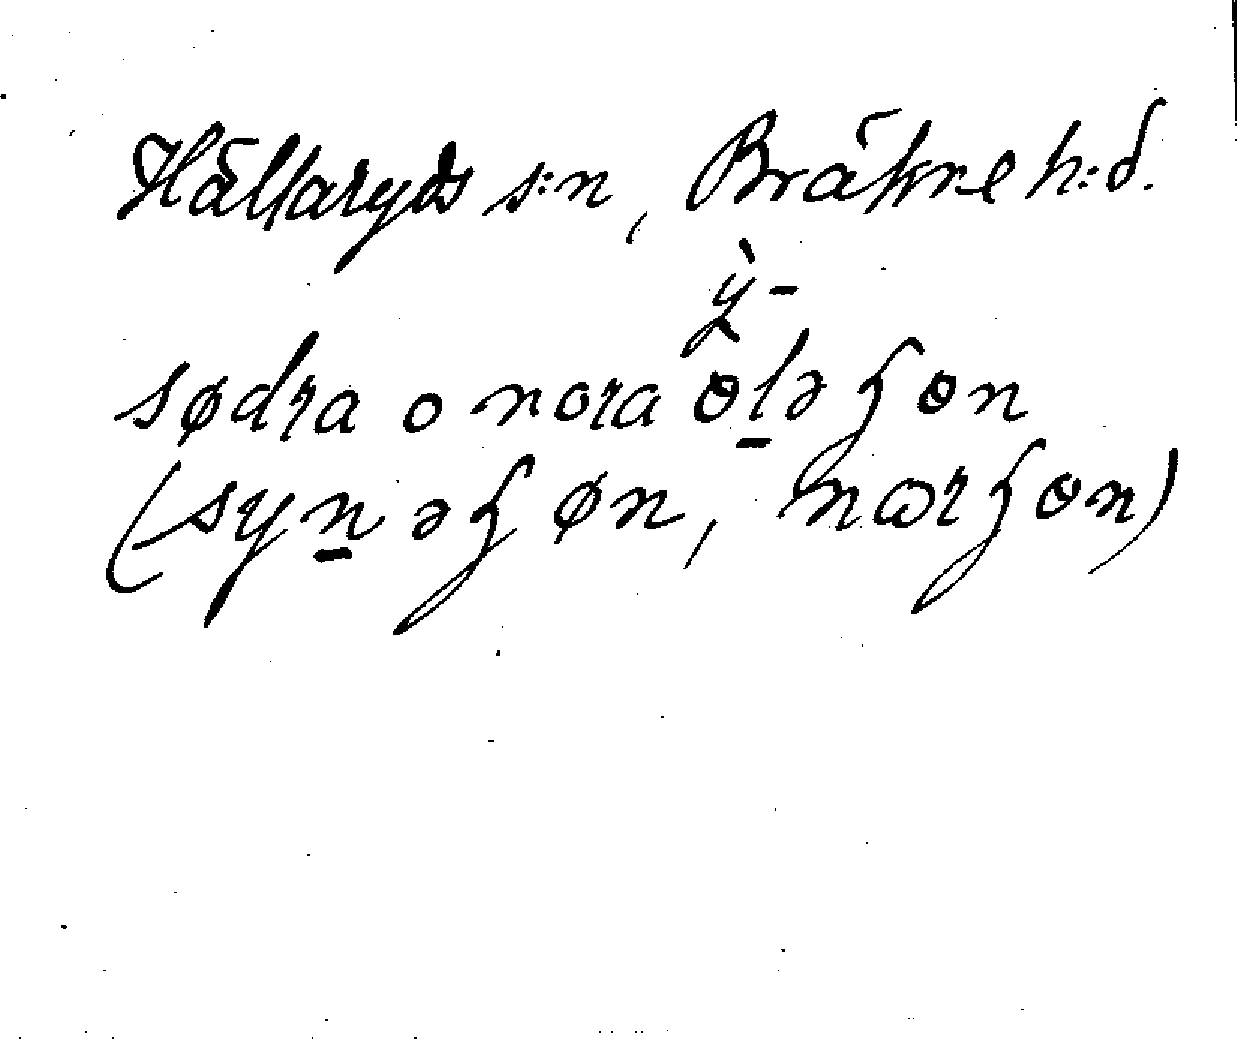 Hällaryds s:n, Bräkne h:d.
ỳ-
sødra o nora ɵlə ʃɵn
(synəʃ øn, nɷrʃɵn)